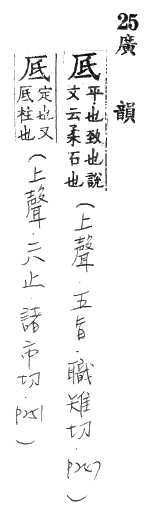 25廣韻
厎 平也致也說文云柔石也 (上聲．五旨．職雉切．P247)
厎 定也又厎柱也 (上聲．六止．諸市切．P251)